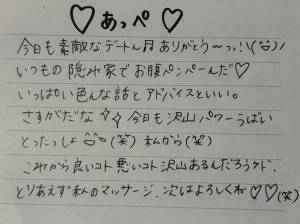 ♡ あっぺ ♡
今日も素敵なデートん♫ ありがとう〜っ!\(^o^)/
いつもの隠れ家でお腹ペンペーんだ♡
いっぱい色んな話とアドバイスといい。
さすがだな✧✧今日も沢山パワーうばい
とったっしょ (笑) 私から(笑)
これから良いコト悪いコト沢山あるんだろうケド、
とりあえず私のマッサージ、次はよろしくね♡♡(笑)